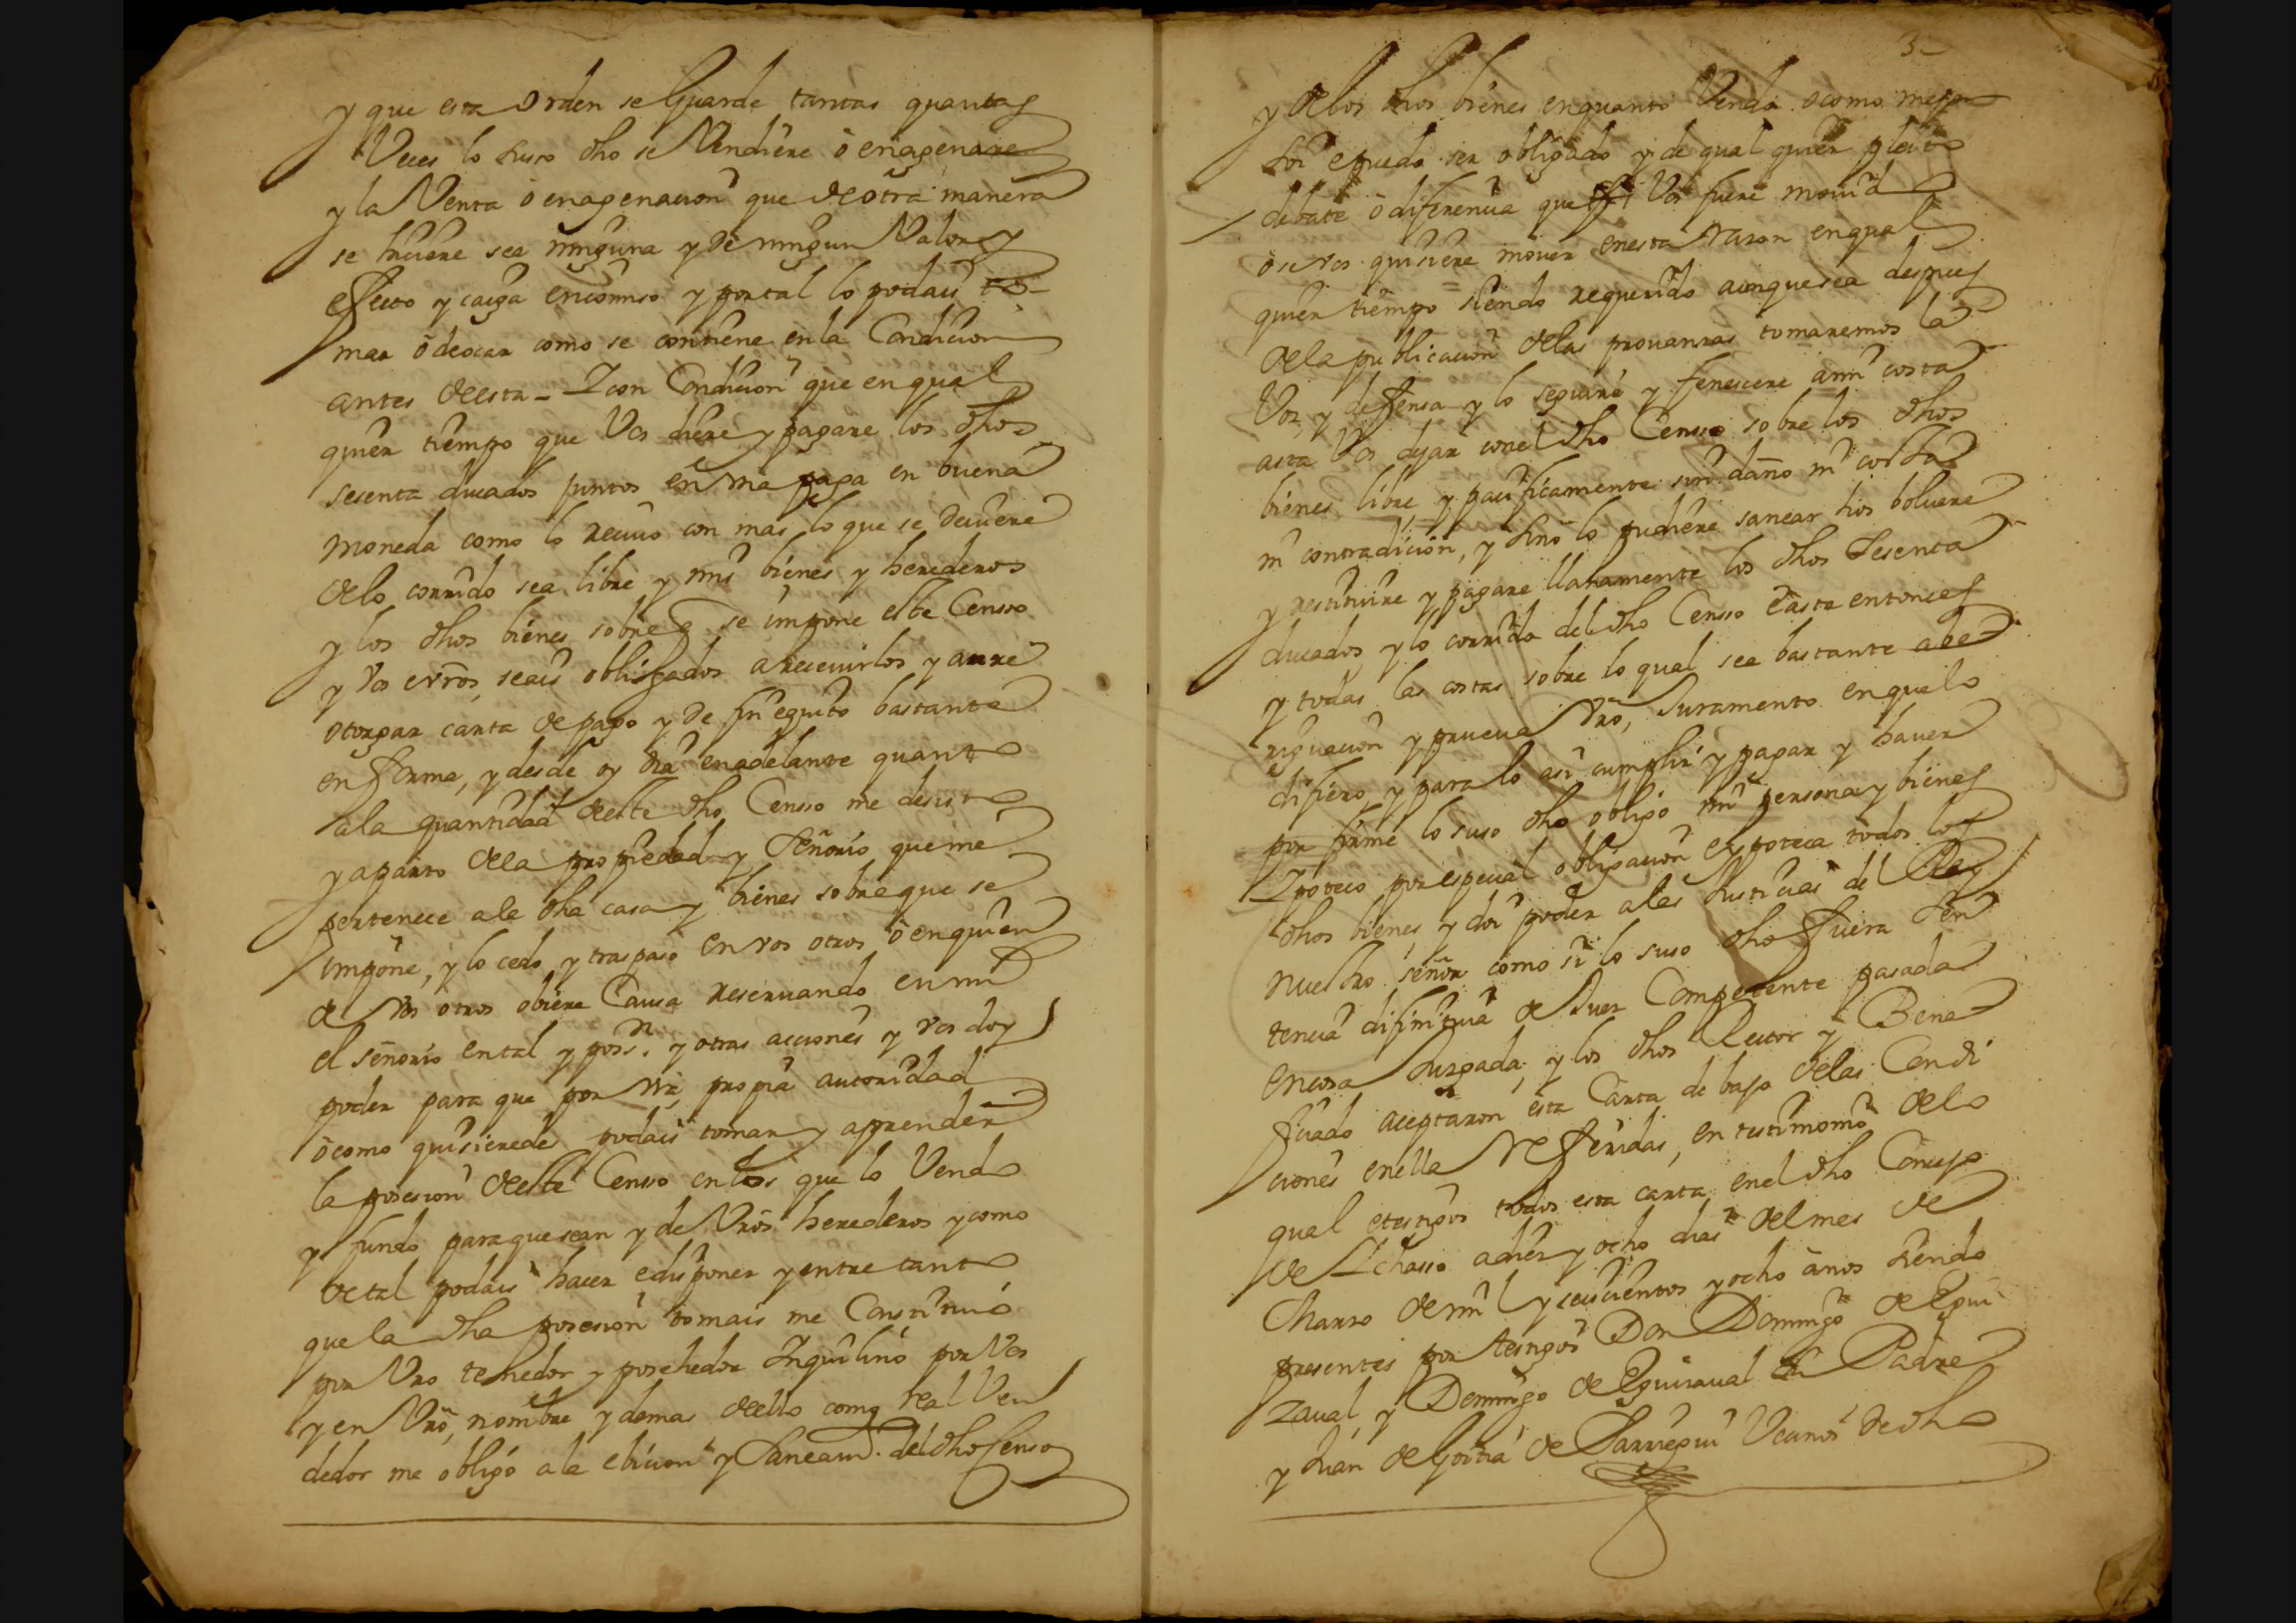 y que esta orden se Guarde tantas quantas
Veces lo suso dho se Vendiere ò enagenare
y la Venta ò enagenacion que de otra manera
se hiciere sea ninguna y de ningun Valor y
efecto y caiga en comisso y por tal lo podais to-
mar ò dexar como se contiene en la Condicion
antes de esta - Y con Condicion que en qual
quier tiempo que Vos diere y pagare los dhos
sesenta ducados juntos en vna paga en buena
moneda como lo reciuo con mas lo que se deuiere
delo corrido sea libre y mis bienes y herederos
y los dhos bienes sobre q se impone este Censso
y Vos e vr̃os seais obligados a reseuirlos y a me
otorgar carta de pago y de fin equito bastante
en forma, y desde oy dia en adelante quanto
ala quantidad deeste dho Censso me desisto
y aparto dela propiedad y Señorio que me
pertenece ala dha casa y bienes sobre que se
impone, y lo cedo y traspaso en vos otros ò en quien
de Vos otros obiere Causa reseruando en mi
el señorio en tal y poss.n y otras acciones y vos doy
poder para que por vr̃a propia autoridad
ò como quisierede podais tomar y aprender
la posesion deeste Censso en los que lo Vendo
y fundo para que sean y de Vr̃os herederos y como
de tal podais hacer e disponer y entre tanto
que la dha posesion tomais me Constituio
por Vr̃o tenedor y posehedor Inquilino por Vos
y en Vr̃o nombre y demas deello como real Ven
dedor me obligo ala ebicion y Saneam.to del dho Censo
3-
y delos dhos bienes en quanto Vendo o como mejor
soi e puedo ser obligado y de qual quier pleito
debate ò diferencia que Vos fuere mouid
ò se vos quisiere mouer en esta razon en qual
quier tiempo siendo requerido aunque sea despues
dela publicacion delas prouanzas tomaremos la
Voz y deffensa y lo seguire y fenescere a mi costa
asta Vos dejar con el dho Censso sobre los dhos
bienes libre y pacificamente sin daño ni costa
ni contradicion, y sino lo pudiere sanear vos boluere
y restituire y pagare llanamente los dhos Sesenta
ducados y lo corrido del dho Censso easta entonces
y todas las costas sobre lo qual sea bastante abe
riguacion y prueua Vr̃o Juramento en quelo
difiero, y para lo asi cumplir y pagar y hauer
por firme lo suso dho obligo mi persona y bienes
Ypoteco por especial obligacion e ypoteca todos los
dhos bienes y doi poder alas Justicias del Rey
nuestro señor como si lo suso dho fuera sen
tencia difinitiua de Juez Competente pasada
en cosa Jusgada, y los dhos Rector y Bene
ficiado aceptaron esta Carta de bajo delas Condi
ciones en ella Refferidas, en testimonio delo
qual otorgos todos esta carta en el dho Concejo
de Ychasso a diez y ocho dias del mes de
Marzo de mil y seiscientos y ocho años siendo
presentes por testigos Don Domingo de Egui
zaual, y Domingo de Eguizaual su Padre
y Juan de Goitia de Sarriegui Vecinos de dho